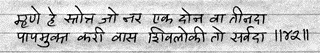 म्हणे हे स्तोत्र जो नर एक दोन वा तीनदा
पापमुक्त करी वास शिवलोकी तो सर्वदा ॥४२॥